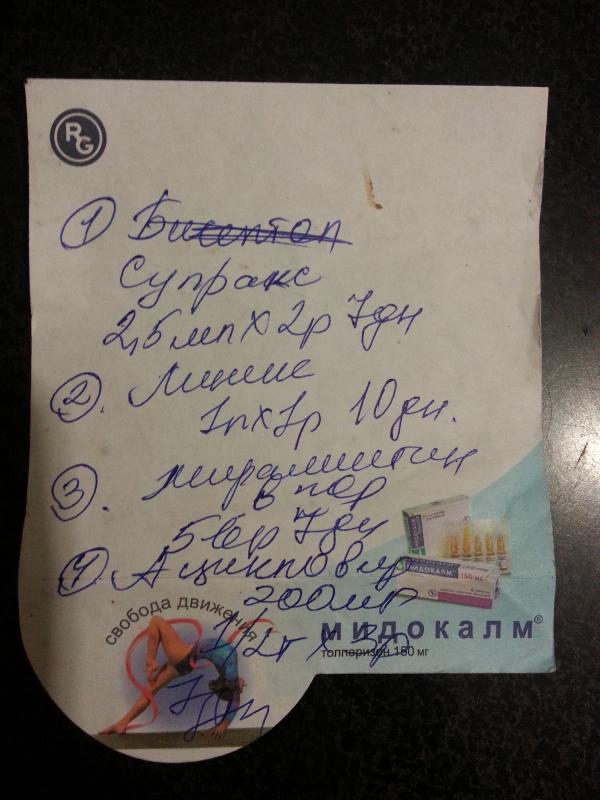 RG
① Бисептол
Супракс
2,5 мл х 2р 7дн
②. Линекс
1п х 1р 10 дн.
③. мирамистин
в нос
5 вр 7дн
④ Ацикловир
200мг
1/2т х 3р
7дн
МИДОКАЛМ
МИДОКАЛМ 150 мг
свобода движения!
мидокалм®
толперизон 150 мг